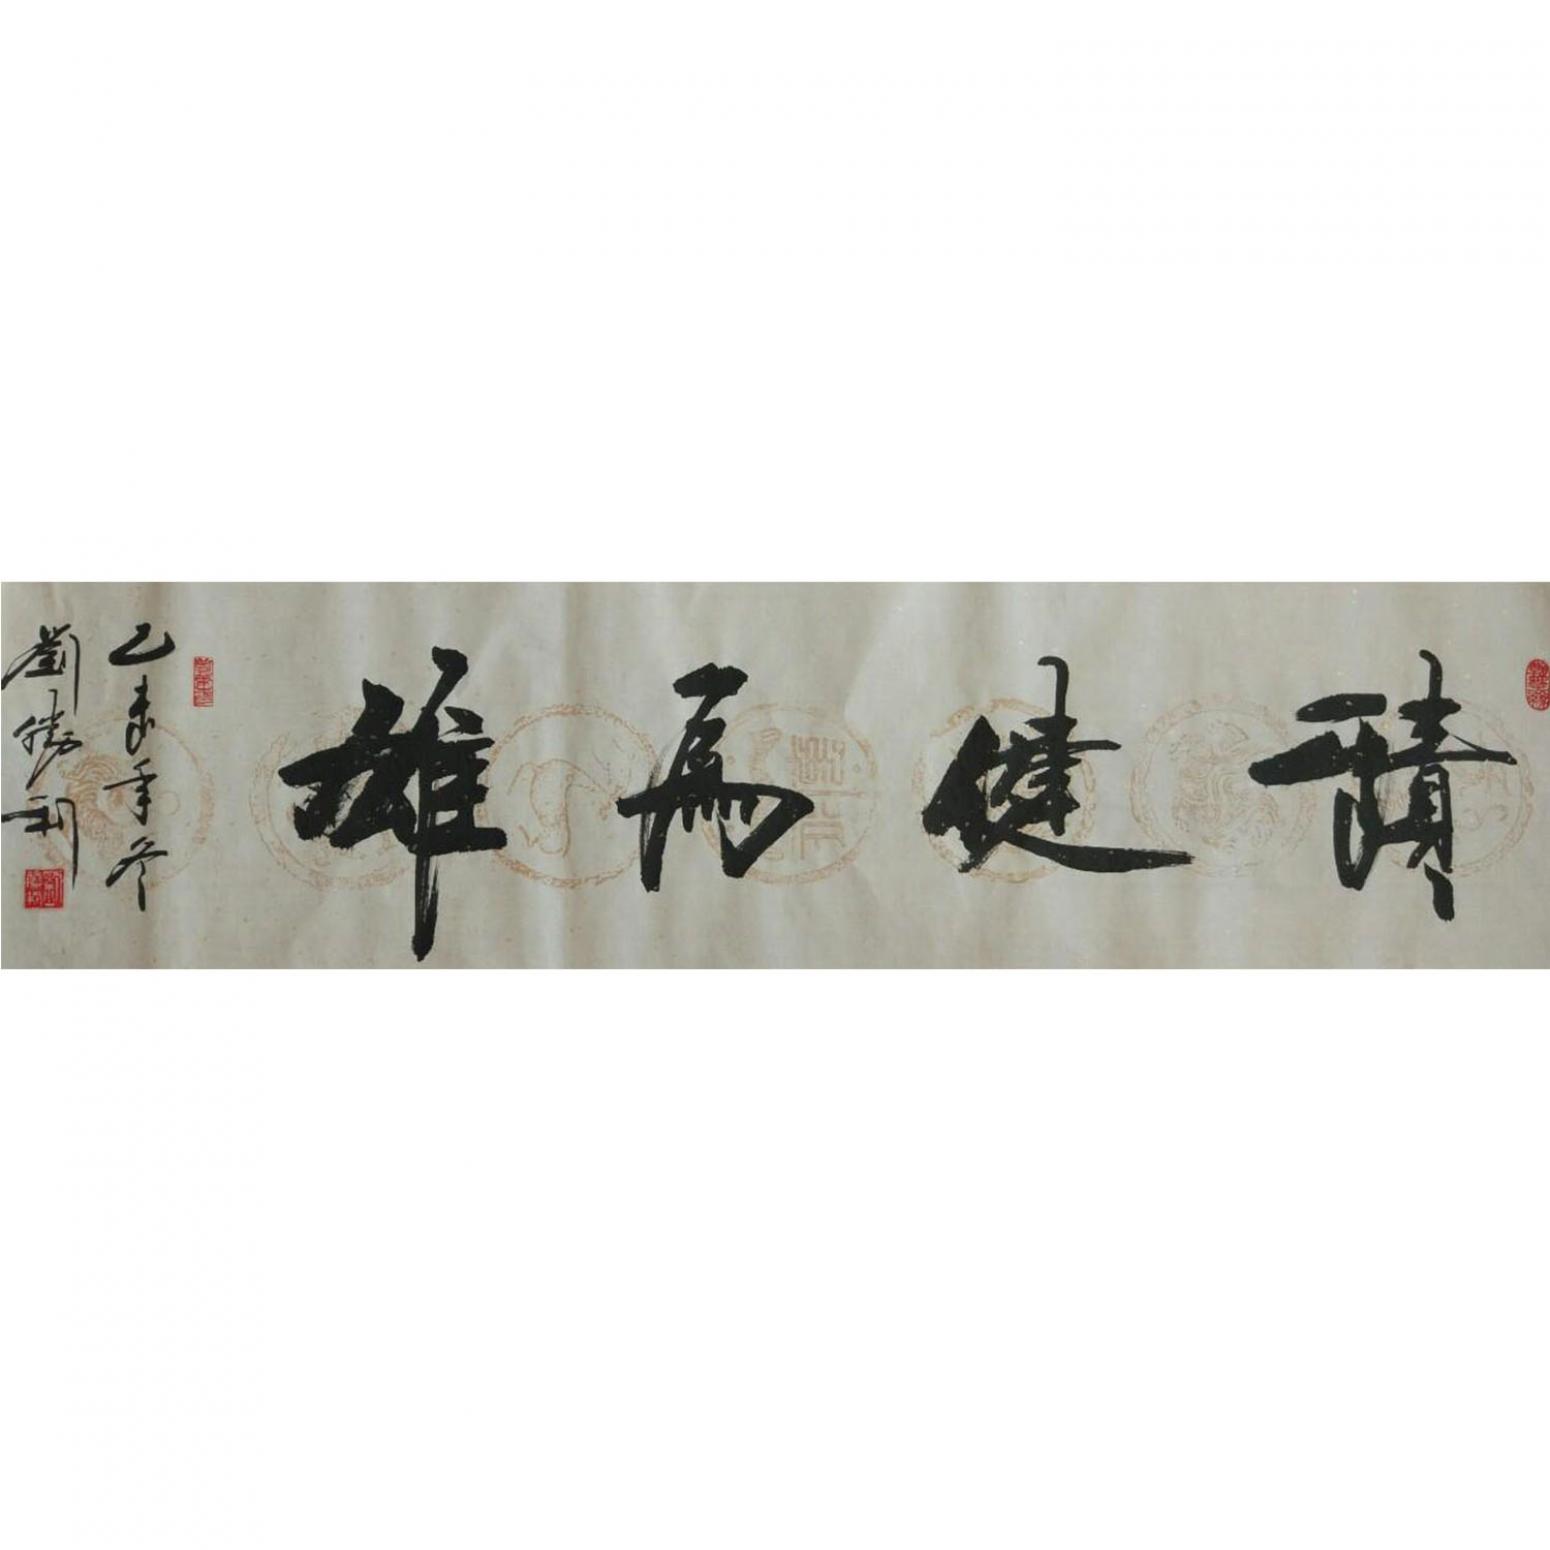 積健為雄
乙未年冬
劉勝利